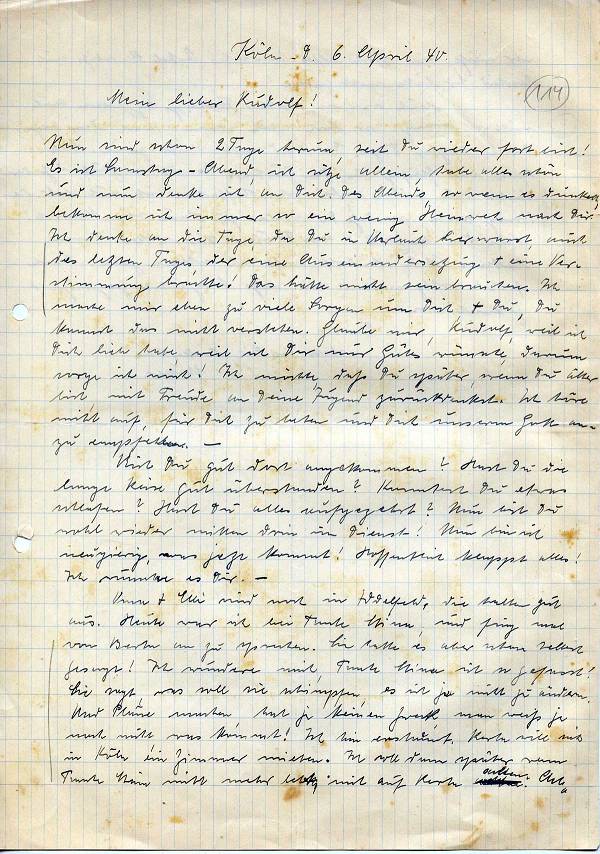 Köln - d. 6. April 40.
114
Mein lieber Rudolf!
Nun sind schon 2 Tage herum, seit Du wieder fort bist!
Es ist Samstag-Abend, ich sitze allein, habe alles schön
und nun denke ich an Dich. Des Abends, so wenn es dunkelt,
bekomme ich immer so ein wenig Heimweh nach Dir.
Ich denke an die Tage, da Du in Urlaub hier warst, auch
des letzten Tages der eine Auseinandersetzung + eine Ver-
stimmung brachte! Das hätte nicht sein brauchen. Ich
mache mir eben zu viele Sorgen um Dich, + Du, Du
kannst das nicht verstehen. Glaube mir, Rudolf, weil ich
Dich lieb habe, weil ich Dir nur Gutes wünsche, darum
sorge ich mich! Ich möchte daß Du später, wenn Du älter
bist mit Freude an Deine Jugend zurückdenkst. Ich höre
nicht auf, für Dich zu beten und Dich unserm Gott an-
zu empfehlen. —
Bist Du gut dort angekommen? Hast Du die
lange Reise gut überstanden? Konntest Du etwas
schlafen? Hast Du alles aufgezehrt? Nun bist Du
wohl wieder mitten drin im Dienst! Nun bin ich
neugierig, was jetzt kommt! Hoffentlich klappt alles!
Ich wünsche es Dir. —
+ Elli sind noch in Iddelfeld, die halten gut
aus. Heute war ich bei Tante Mina, und fing mal
von an zu sprechen. Sie hatte es aber schon selbst
gesagt! Ich wundere mich Tante Mina ist so gefasst!
Sie sagt, was soll sie schimpfen es ist ja nicht zu ändern.
Und Pläne machen hat ja keinen Zweck man weiß ja
noch nicht was kommt! Ich bin erstaunt. will sich
in Köln ein Zimmer mieten. Ich soll dann später wenn
Tante Mina nicht mehr lebt, mit auf achten.